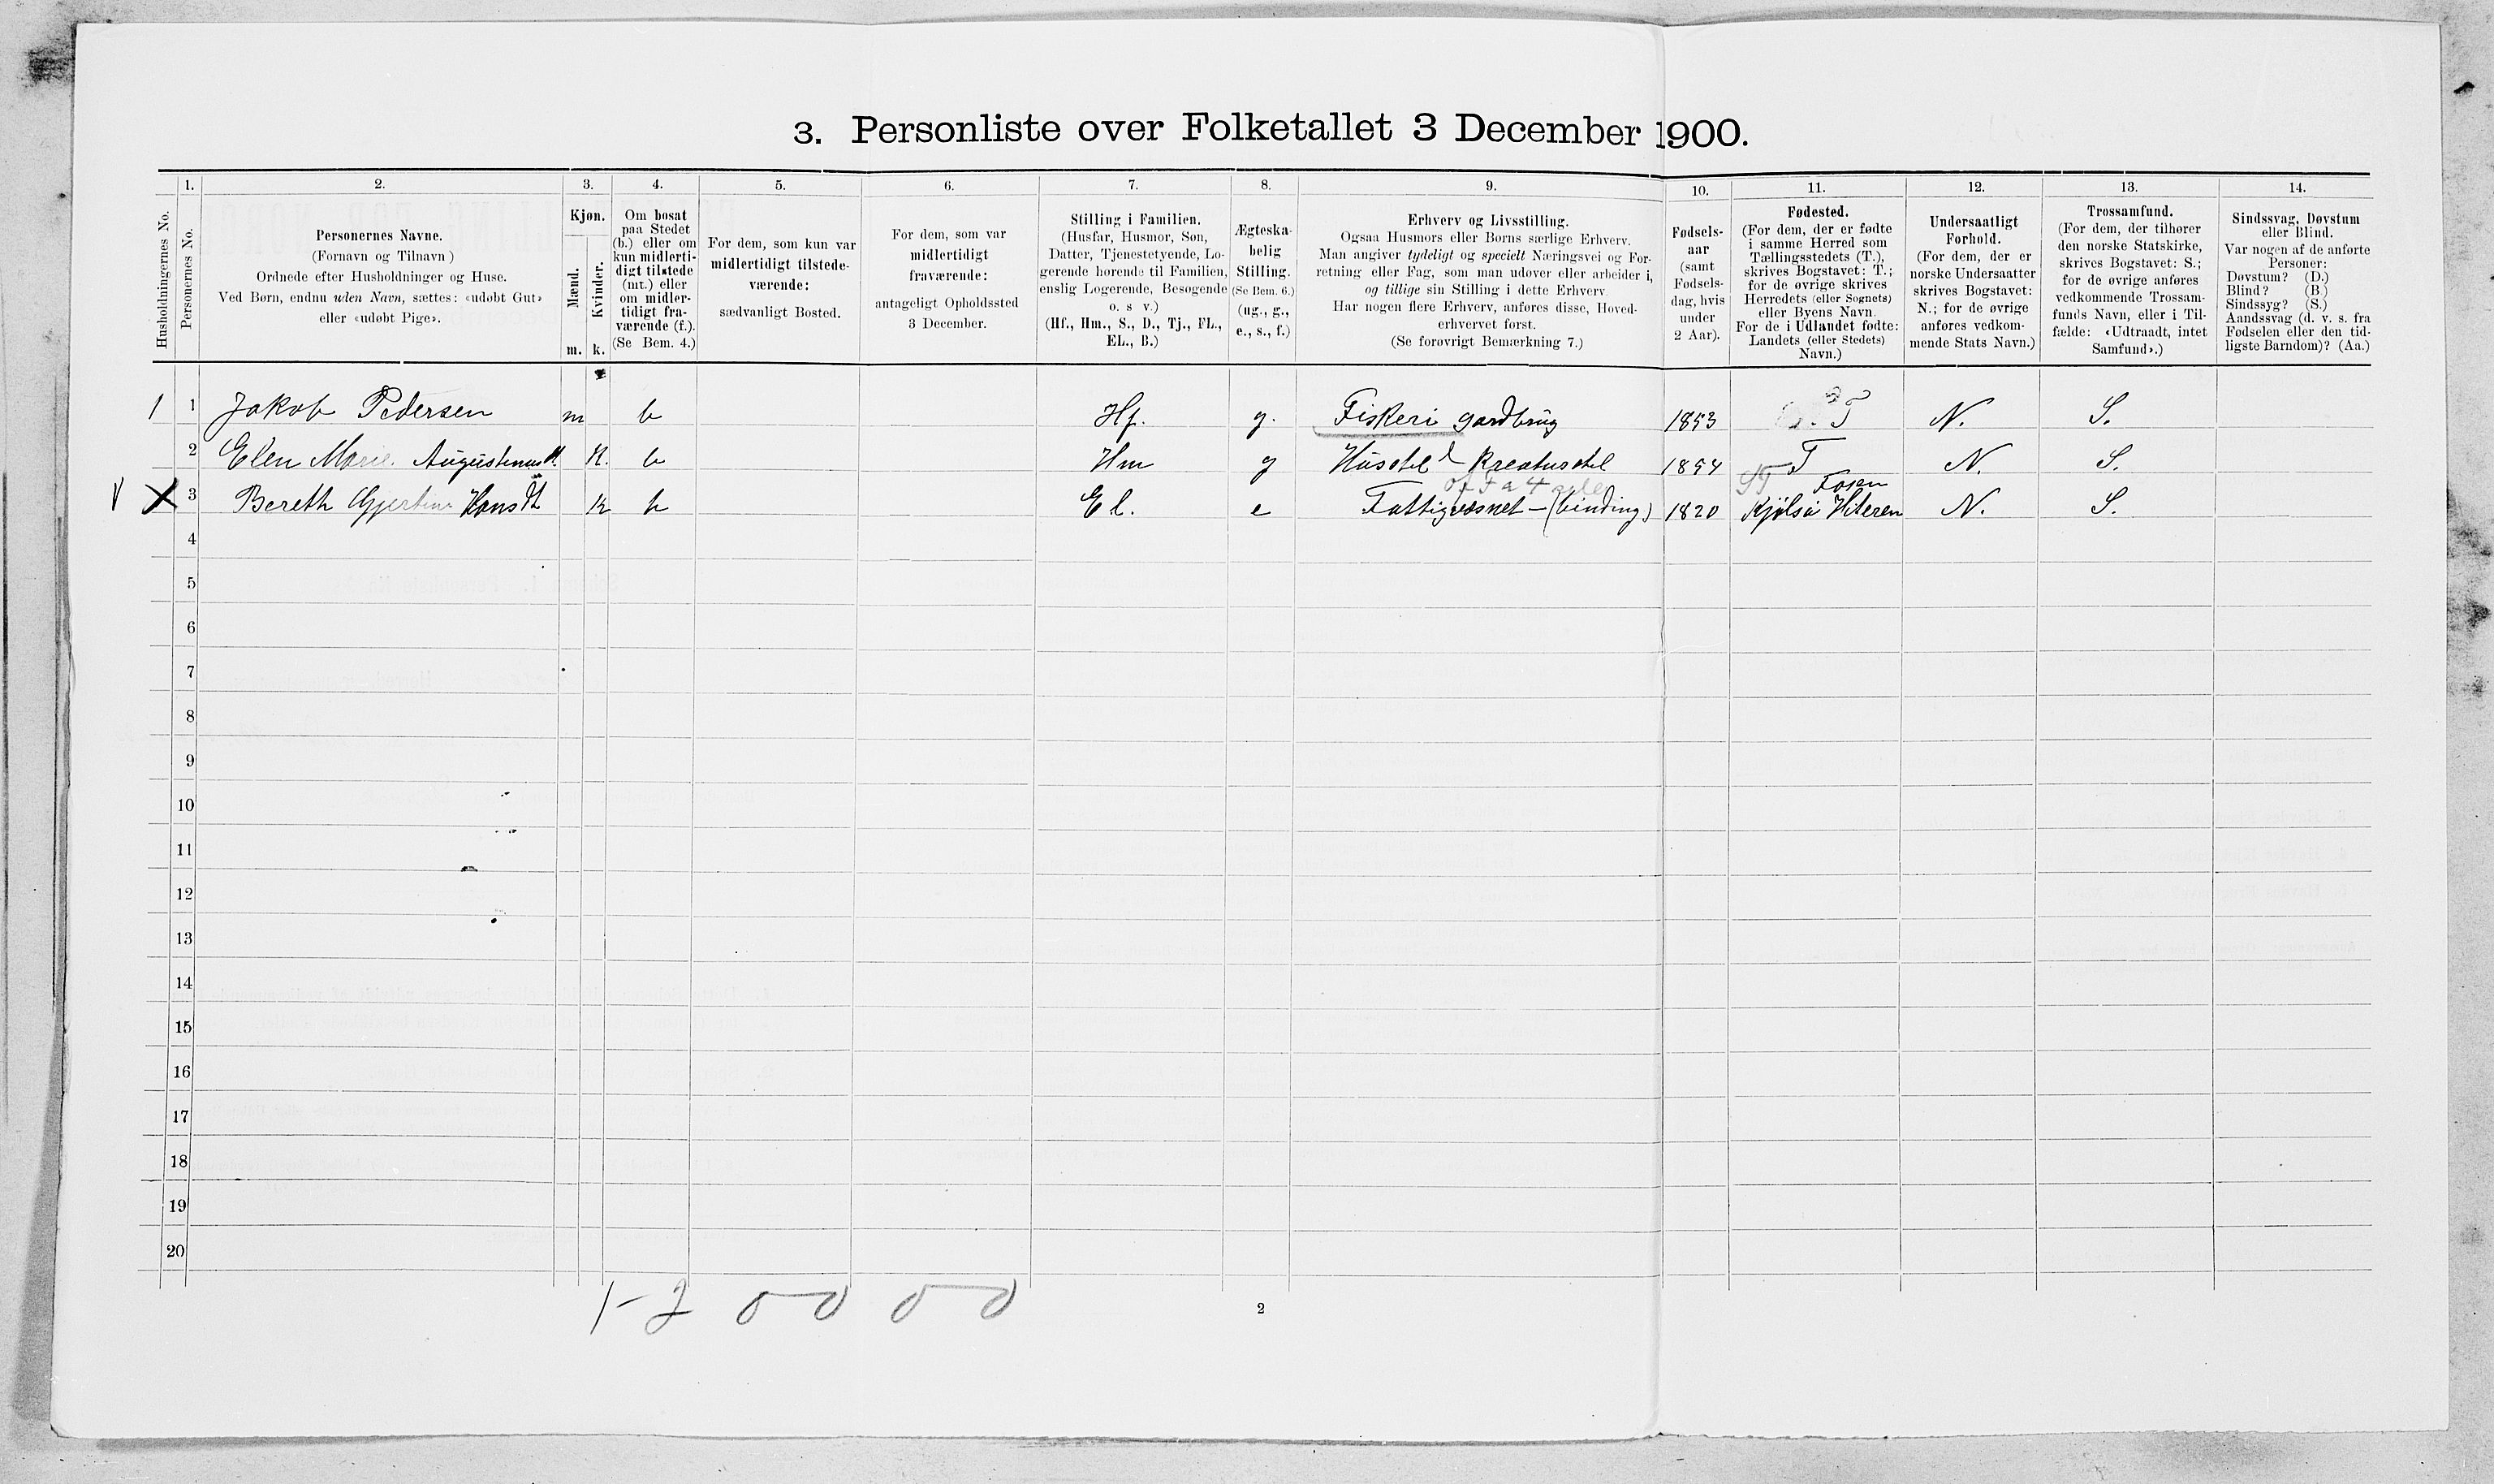 3. Personliste over Folketallet 3 December 1900.
Husholdningernes No.
1.
Personernes No.
2.
Personernes Navne.
(Fornavn og Tilnavn)
Ordnede efter Husholdninger og Huse.
Ved Børn, endnu uden Navn, sættes: «udøbt Gut»
eller «udøbt Pige».
3.
Kjøn.
Mænd.
Kvinder.
m. k.
4.
Om bosat
paa Stedet
(b.) eller om
kun midlerti-
digt tilstede
(mt.) eller
om midler-
tidigt fra-
værende (f.).
(Se Bem. 4.)
5.
For dem, som kun var
midlertidigt tilstede-
værende:
sædvanligt Bosted.
6.
For dem, som var
midlertidigt
fraværende:
antageligt Opholdssted
3 December.
7.
Stilling i Familien.
(Husfar, Husmor, Søn,
Datter, Tjenestetyende, Lo-
gerende hørende til Familien,
enslig Logerende, Besøgende
o. s v.)
(Hf., Hm., S., D., Tj., FL.,
EL., B.)
8.
Ægteska-
belig
Stilling.
(Se Bem. 6.)
(ug., g.,
e., s., f.)
9.
Erhverv og Livsstilling.
Ogsaa Husmors eller Børns særlige Erhverv.
Man angiver tydeligt og specielt Næringsvei og For-
retning eller Fag, som man udøver eller arbeider i,
og tillige sin Stilling i dette Erhverv.
Har nogen flere Erhverv, anføres disse, Hoved-
erhvervet først.
(Se forøvrigt Bemærkning 7.)
10.
Fødsels-
aar
(samt
Fødsels-
dag, hvis
under
2 Aar).
11.
Fødested.
(For dem, der er fødte
i samme Herred som
Tællingsstedets (T.),
skrives Bogstavet: T.;
for de øvrige skrives
Herredets (eller Sognets)
eller Byens Navn.
For de i Udlandet fødte:
Landets (eller Stedets)
Navn.)
12.
Undersaatligt
Forhold.
(For dem, der er
norske Undersaatter
skrives Bogstavet:
N.; for de øvrige
anføres vedkom-
mende Stats Navn.)
13.
Trossamfund.
(For dem, der tilhører
den norske Statskirke,
skrives Bogstavet: S.;
for de øvrige anføres
vedkommende Trossam-
funds Navn, eller i Til-
fælde: «Udtraadt, intet
Samfund».)
14.
Sindssvag, Døvstum
eller Blind.
Var nogen af de anførte
Personer:
Døvstum? (D.)
Blind? (B.)
Sindssyg? (S.)
Aandssvag (d. v. s. fra
Fødselen eller den tid-
ligste Barndom)? (Aa.)
1 1 Jakob Pedersen m b Hf. g. Fiskeri gardbrug 1853 T N. S.
2 Elen Marie Augustinusd. k. b Hm g Husstel Kreaturstel 1854 T N. S.
X 3 Bereth Gjertine Hansdt k b El. e Fattigvæsnet - (binding) 1820 Fosen Hiteren N. S.
4
5
6
7
8
9
10
11
12
13
14
15
16
17
18
19
20
1 - 2 0 0 0 0
2